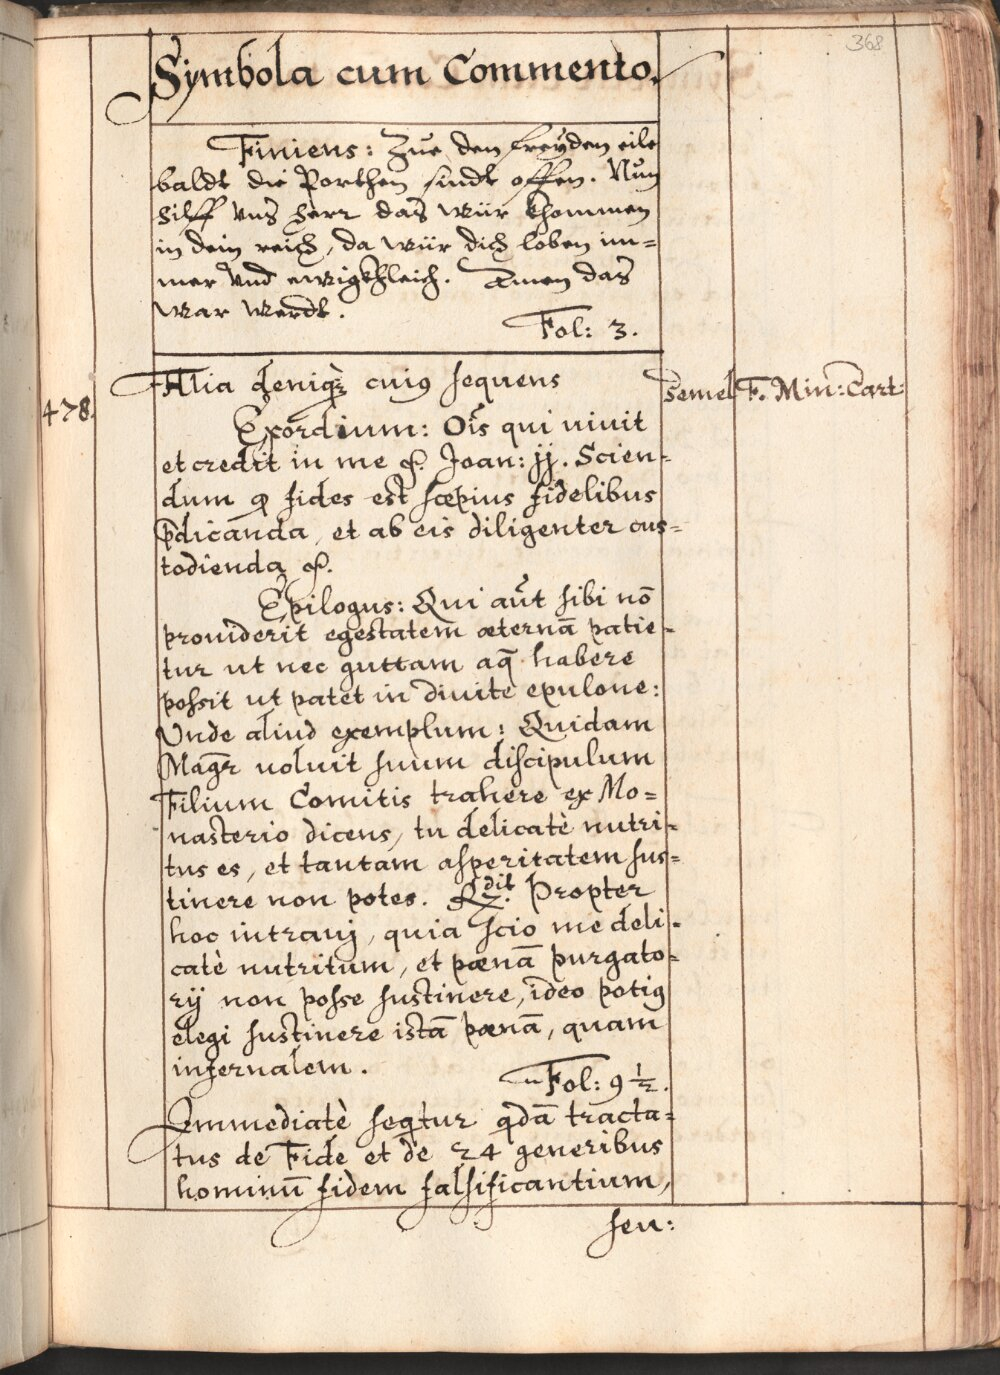 368
Symbola cum Commento.
Finiens: Zue den freyden eile
baldt die Porthen sindt offen. Nun
hilff vns herr das wür khommen
in dein reich, da wür dich loben im=
mer vnd ewigkhleich. Amen das
war werdt.
Fol: 3.
478.
Alia deniq₃ cui9 sequens
semel
F. Min: Cart:
Exordium: Ois̃ qui viuit
et credit in me &. Joan: jj. Scien=
dum ꝙ fides est sæpius fidelibus
p̄dicanda, et ab eis diligenter cus=
todienda &.
Epilogus: Qui aũt sibi nõ
prouiderit egestatem æternã patie=
tur ut nec guttam aq̃ habere
possit ut patet in diuite epulone:
Vnde aliud exemplum: Quidam
Magr̃ uoluit suum discipulum
Filium Comitis trahere ex Mo=
nasterio dicens, tu delicatè nutri=
tus es, et tantam asperitatem sus=
tinere non potes. Rdit. Propter
hoc intrauj, quia scio me deli=
catè nutritum, et pœnã purgato=
rij non posse sustinere, ideo poti9
elegi sustinere istã pœnã, quam
infernalem.
Fol: 9 ½.
Immediatè seqtur qdã tracta=
tus de Fide et de 24 generibus
hominũ fidem falsificantium,
seu: